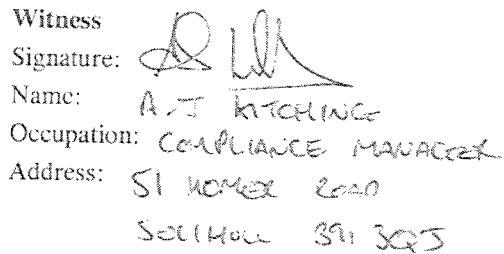 Witness
Signature:
Name: A.J KITCHING
Occupation: COMPLIANCE MANAGER
Address: 51 HOMER ROAD
SOLIHULL B91 3QJ